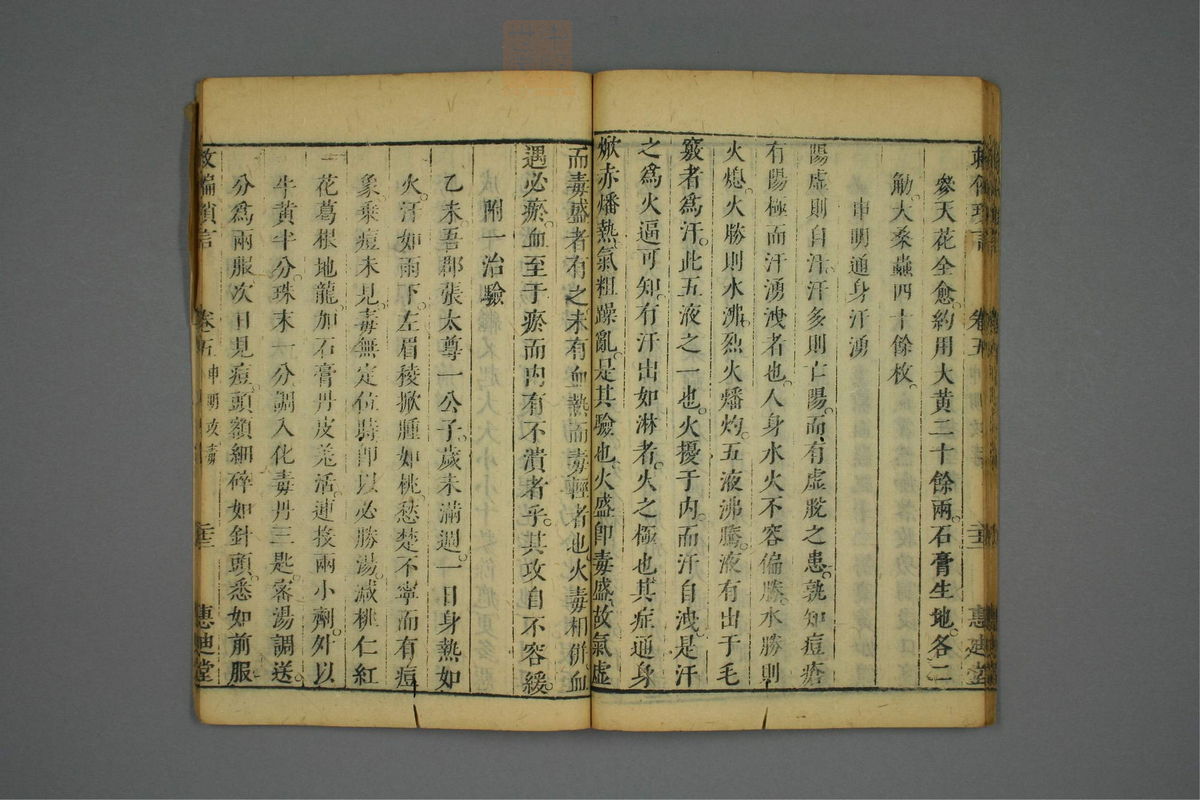 救偏瑣言
卷五
惠迪堂
參天花全愈約用大黃二十餘兩石膏生地各二
觔大桑蟲四十餘枚
申明通身汗湧
陽虛則自汗汗多則亡陽而有虛脫之患孰知痘瘡
有陽極而汗湧洩者也人身水火不容偏勝水勝則
火熄火勝則水沸烈火燔灼五液沸騰液有出于毛
竅者為汗此五液之一也火擾于內而汗自洩是汗
之為火逼可知有汗出如淋者火之極也其症通身
焮赤燔熱氣粗躁亂是其驗也火盛即毒盛故氣虛
而毒盛者有之未有血熱而毒輕者也火毒相併血
遇必瘀血至于瘀而內有不潰者乎其攻自不容緩
附一治驗
乙未吾郡張太尊一公子歲未滿週一日身熱如
火汗如雨下左眉稜掀腫如桃愁楚不寧而有痘
象乘痘未見毒無定位時即以必勝湯減桃仁紅
花葛根地龍加石膏丹皮羌活連投兩小劑外以
牛黃半分珠末一分調入化毒丹三匙客湯調送
分為兩服次日見痘頭額細碎如針頭悉如前服
救偏瑣言
卷五
申明攻毒
惠迪堂